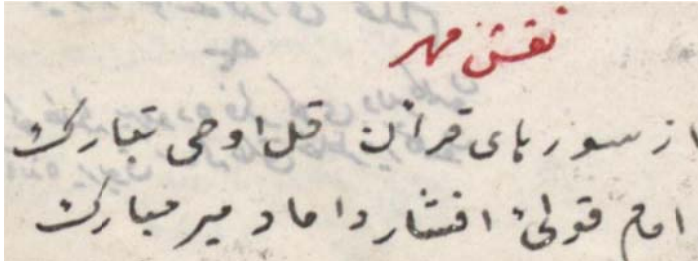 نقش مهر
از سورهای قرآن قل اوحی تبارک
امام قولی افشار داماد میر مبارک